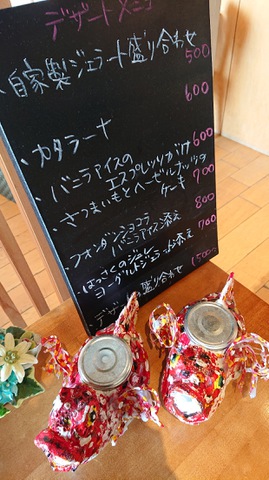 デザートメニュー
・自家製ジェラート盛り合わせ 500
・カタラーナ 600
・バニラアイスの
エスプレッソがけ 600
・さつまいもとヘーゼルナッツの
ケーキ 700
・フォンダンショコラ 800
バニラアイス添え
・はっさくのジュレ 700
ヨーグルトジェラート添え
・デザート盛り合わせ 1500